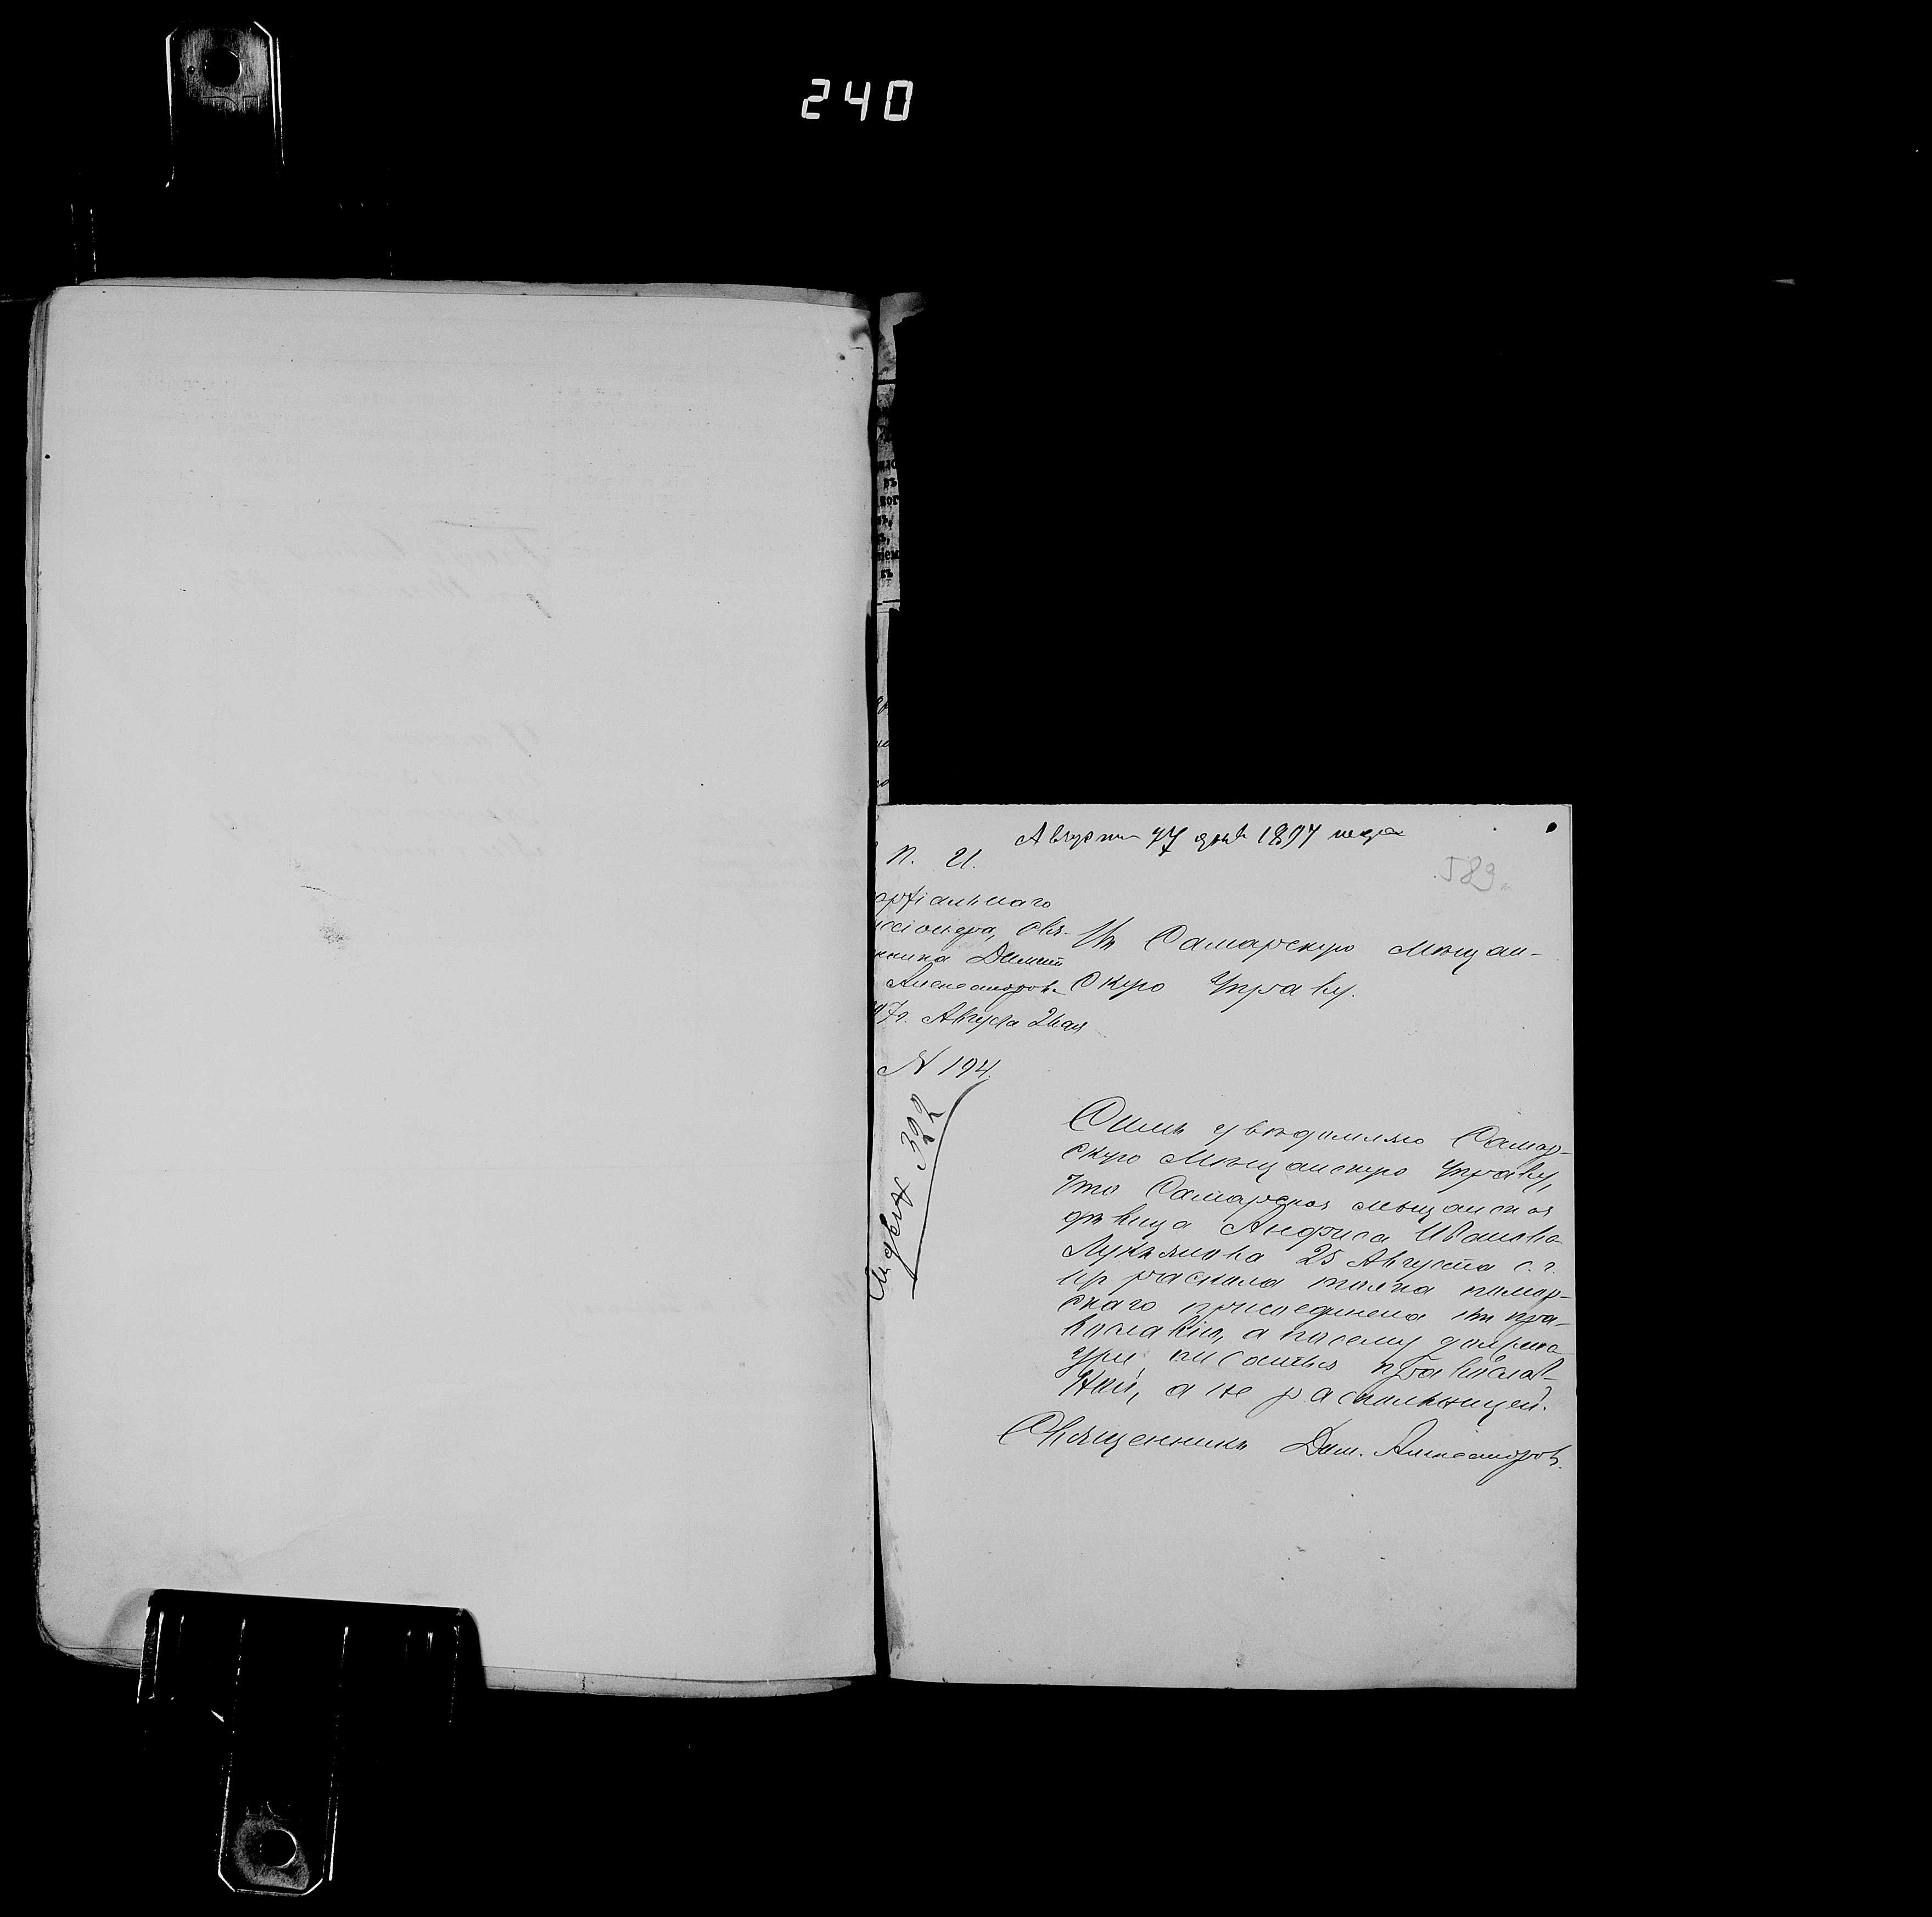 240
Августа 27 дня 1897 года
589
П. И.
архіальнаго
иссіонера, Свя-
нника Димит
Александров
97 г. Августа 26 дня
№ 194.
Въ Самарскую Мѣщан-
скую Управу.
Симъ увѣдомляю Самар-
скую Мѣщанскую Управу,
что Самарская мѣщанская
дѣвица Анфиса Иванова
Лукьянова 25 Августа с. г.
изъ раскола толка помор-
скаго присоединена къ пра-
вославію, а посему должна
уже писаться православ-
ной, а не раскольницей.
Священникъ Дим. Александровъ.
322